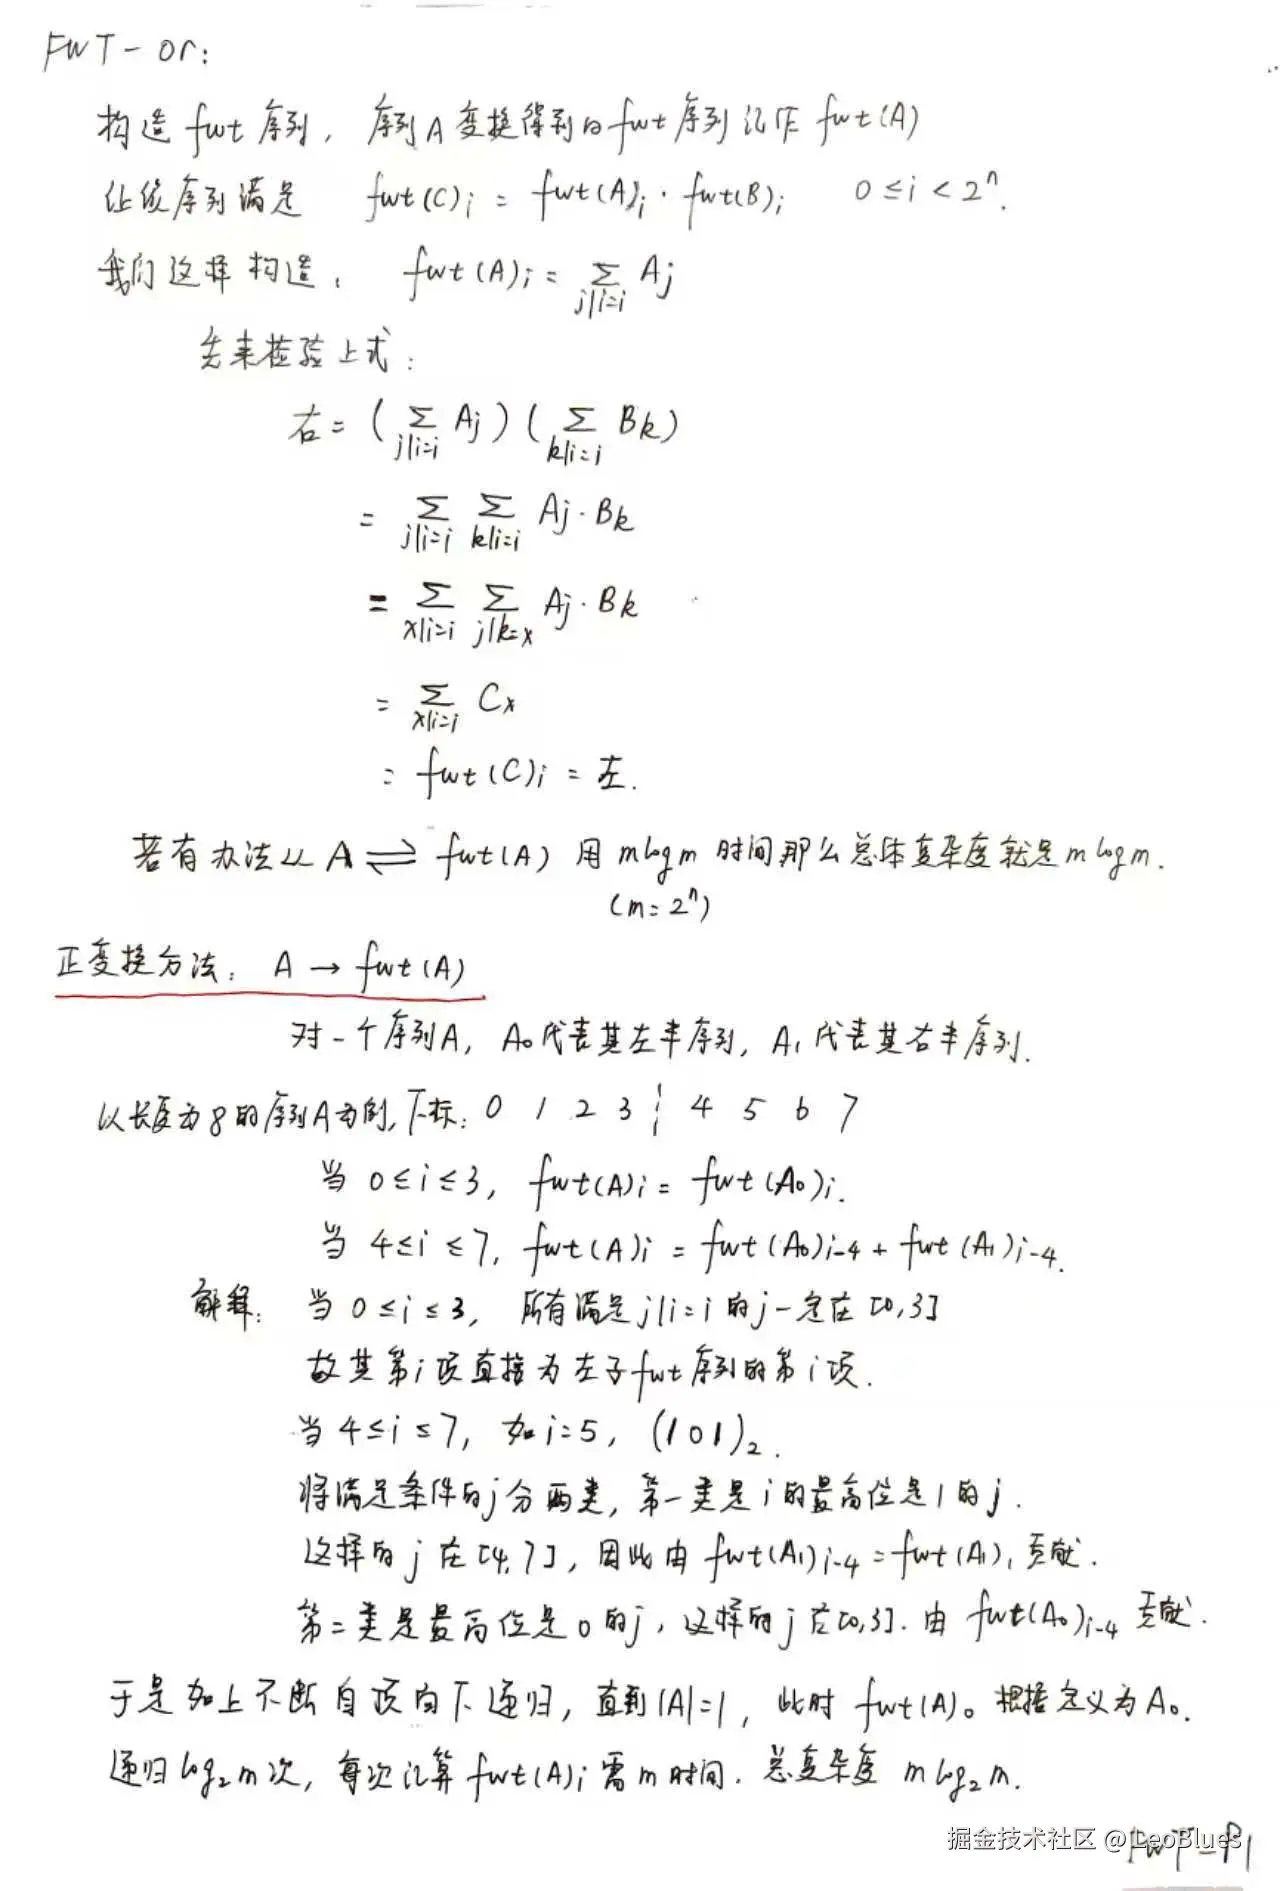 FWT-or:
构造 fwt 序列, 序列A变换得到的fwt序列记作 fwt(A)
让该序列满足 fwt(C)i = fwt(A)i · fwt(B)i 0≤i<2^n.
我们这样构造: fwt(A)i = ∑_{j|i=i} Aj
先来检验上式:
右= (∑_{j|i=i} Aj) (∑_{k|i=i} Bk)
= ∑_{j|i=i} ∑_{k|i=i} Aj·Bk
= ∑_{x|i=i} ∑_{j|k=x} Aj·Bk
= ∑_{x|i=i} Cx
= fwt(C)i = 左.
若有办法从 A ⇌ fwt(A) 用 mlogm 时间那么总体复杂度就是 mlogm.
(m=2^n)
正变换方法: A → fwt(A)
对一个序列A, A0代表其左半序列, A1代表其右半序列.
以长度为8的序列A为例,下标: 0 1 2 3 ¦ 4 5 6 7
当 0≤i≤3, fwt(A)i = fwt(A0)i.
当 4≤i≤7, fwt(A)i = fwt(A0)i-4 + fwt(A1)i-4.
解释: 当 0≤i≤3, 所有满足j|i=i的j一定在[0,3]
故其第i项直接为左子fwt序列的第i项.
当 4≤i≤7, 如i=5, (101)2.
将满足条件的j分两类, 第一类是i的最高位是1的j.
这样的j在[4,7], 因此由 fwt(A1)i-4 = fwt(A)1 贡献.
第二类是最高位是0的j, 这样的j在[0,3]. 由 fwt(A0)i-4 贡献.
于是如上不断自顶向下递归, 直到|A|=1, 此时 fwt(A)0 根据定义为A0.
递归log2m次, 每次计算fwt(A)i需m时间. 总复杂度 mlog2m.
掘金技术社区 @ LeoBlues
FWT-P1